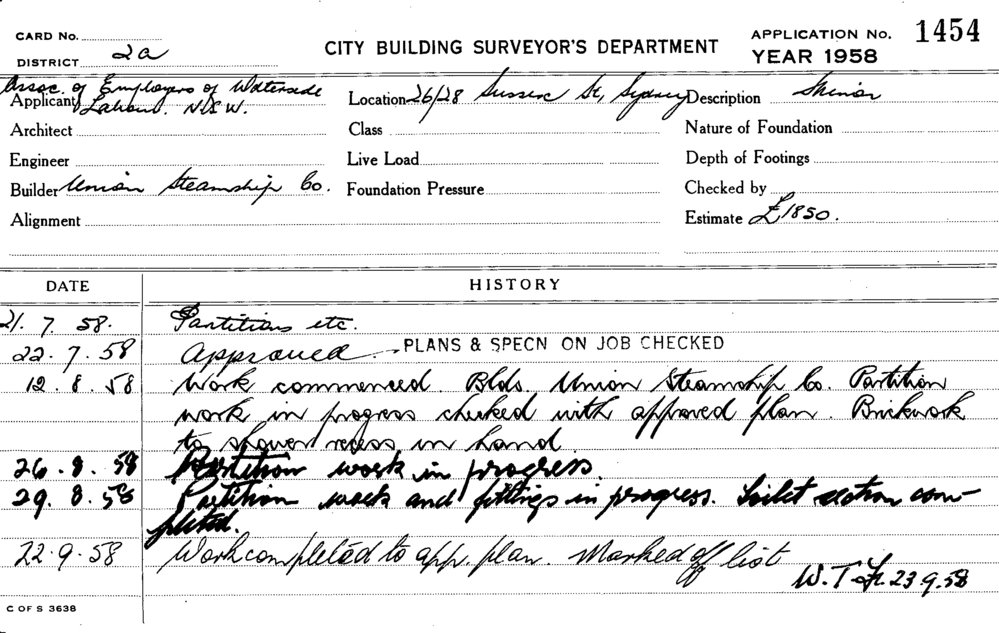 CARD No.
DISTRICT 2a
CITY BUILDING SURVEYOR'S DEPARTMENT
APPLICATION No. 1454
YEAR 1958
Assoc. of Employers of Waterside
Applicant Labour. N.S.W.
Location 26/28 Sussex St, Sydney
Description Minor
Architect
Class
Nature of Foundation
Engineer
Live Load
Depth of Footings
Builder Union Steamship Co.
Foundation Pressure
Checked by
Alignment
Estimate £1850.
DATE HISTORY
21. 7. 58. Partitions etc.
22. 7. 58 Approved. PLANS & SPECN ON JOB CHECKED
12. 8. 58 Work commenced. Blds. Union Steamship Co. Partition
work in progress checked with approved plan. Brickwork
to shower recess in hand
26. 8. 58 Partition work in progress
29. 8. 58 Partition work and fittings in progress. Toilet section com-
pleted.
22.9.58 Work completed to app. plan. Marked off list
W.T. 23.9.58
C OF S 3638